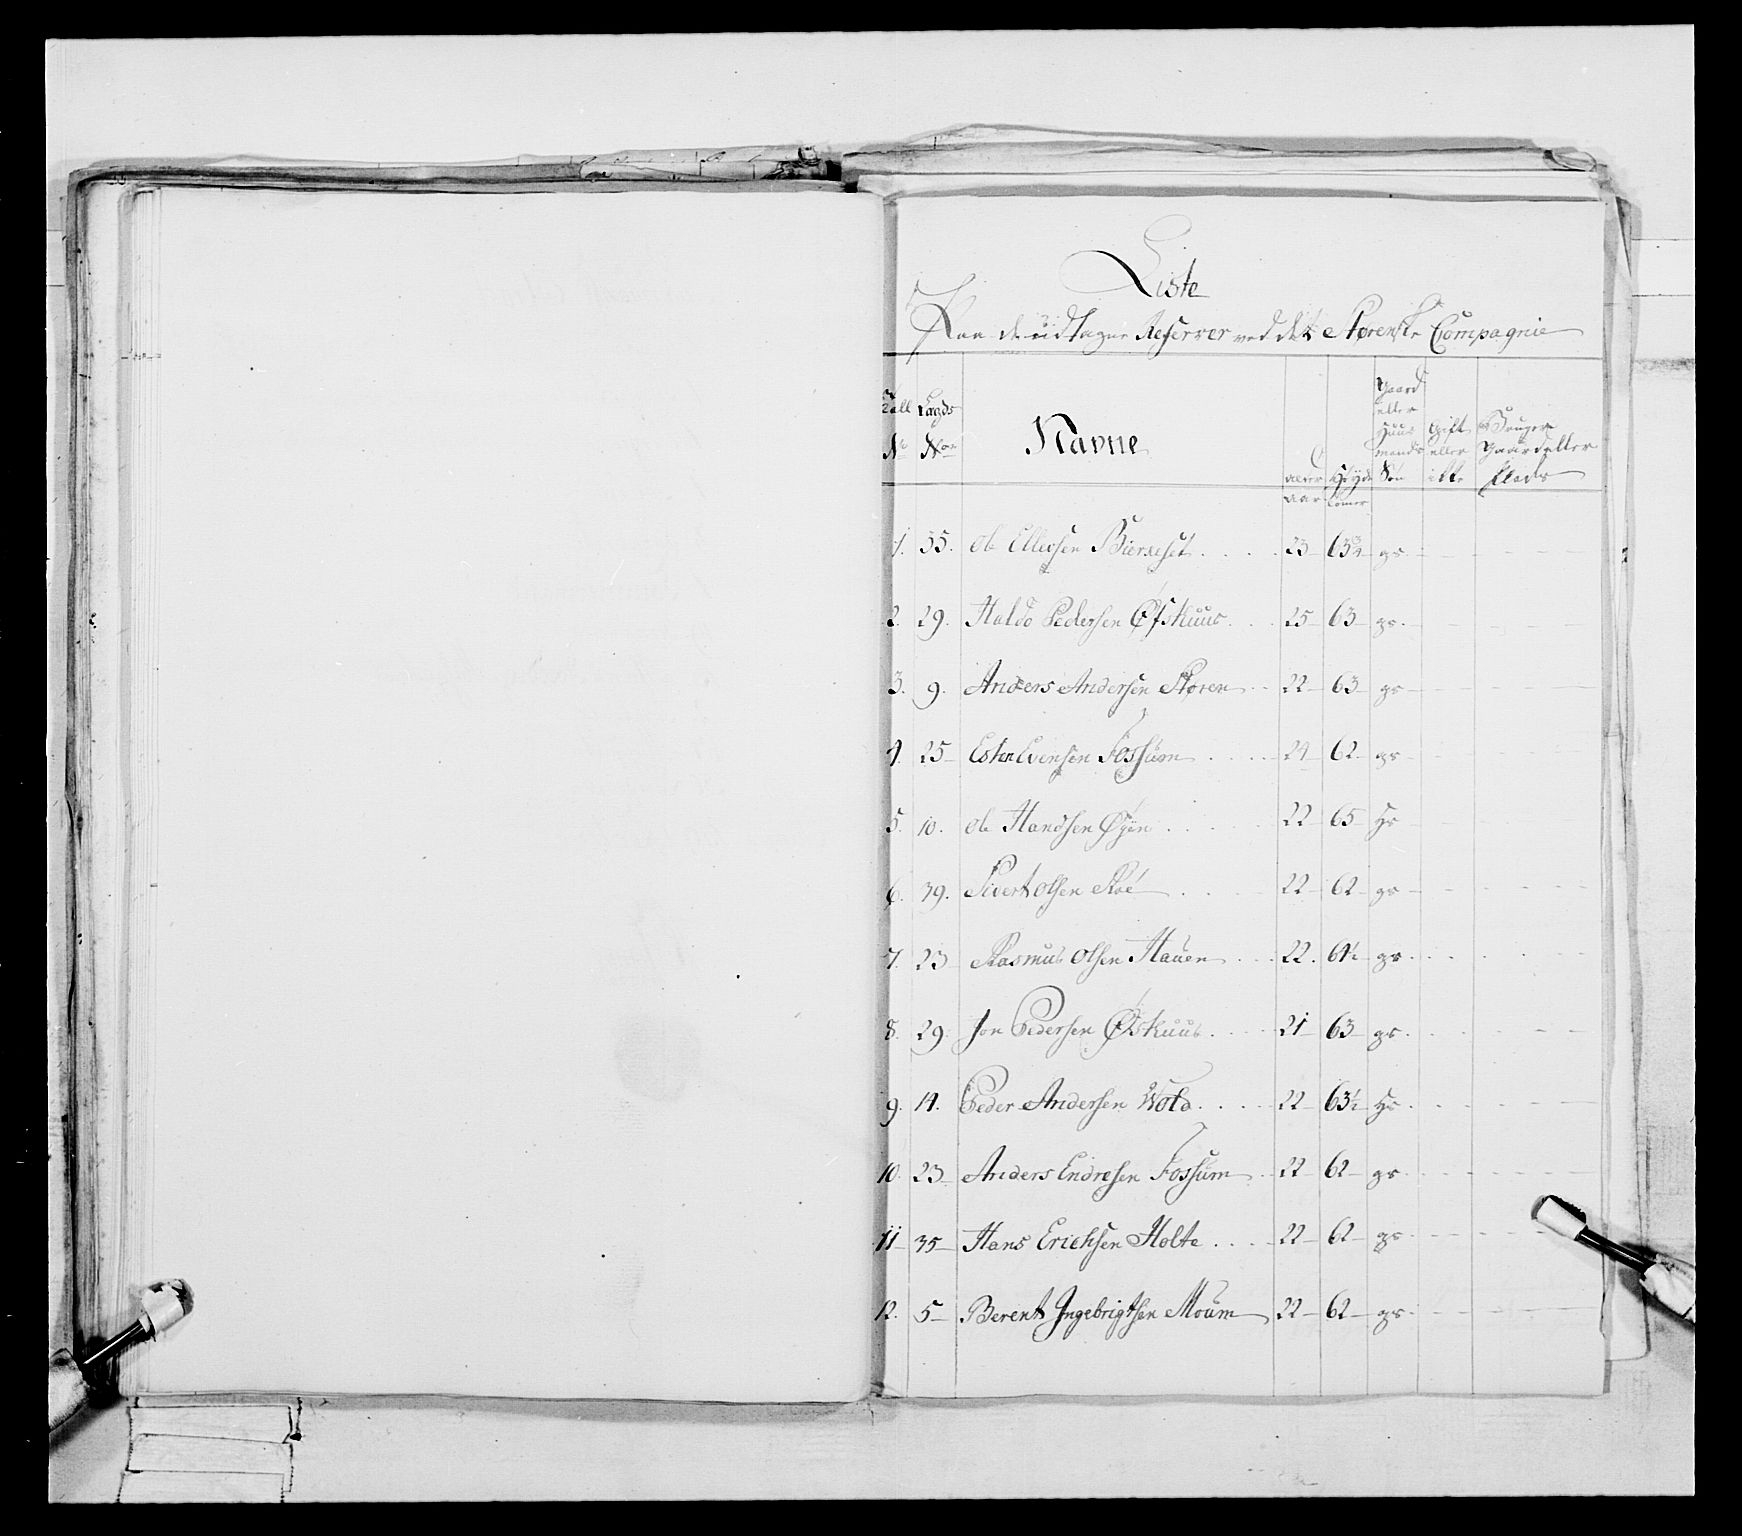 Liste
Paa de udtagne Reserver ved det Størenske Compagnie
Tall No Lægds No Navne alder aar Høyde tomer Gaard eller Huus mands Søn Gift eller ikke Bruger Gaard eller Plads
1. 35. Ole Ellevsen Bierseset 23 63 3/4 gs
2. 29. Haldo Pedersen Øfskuus 25 63 gs
3. 9. Anders Andersen Støren 22 63 gs
4. 25 Esten Evensen Fossum 24 62 gs
5. 10. Ole Handsen Øyen 22 65 Hs
6. 39. Sivert Olsen Roe 22 62 gs
7. 23 Rasmus Olsen Hauen 22. 61 1/2 gs
8. 29. Jon Pedersen Øfskuus 21 63 gs
9. 14. Peder Andersen Wold 22 63 1/2 Hs
10. 23 Anders Endresen Fossum 22 62 gs
11 35 Hans Erichsen Holte 22 62 gs
12. 5 Berent Ingebrigtsen Moum 22 62 gs